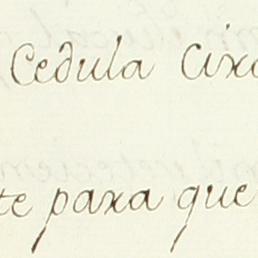 Cedula Circ
te para que